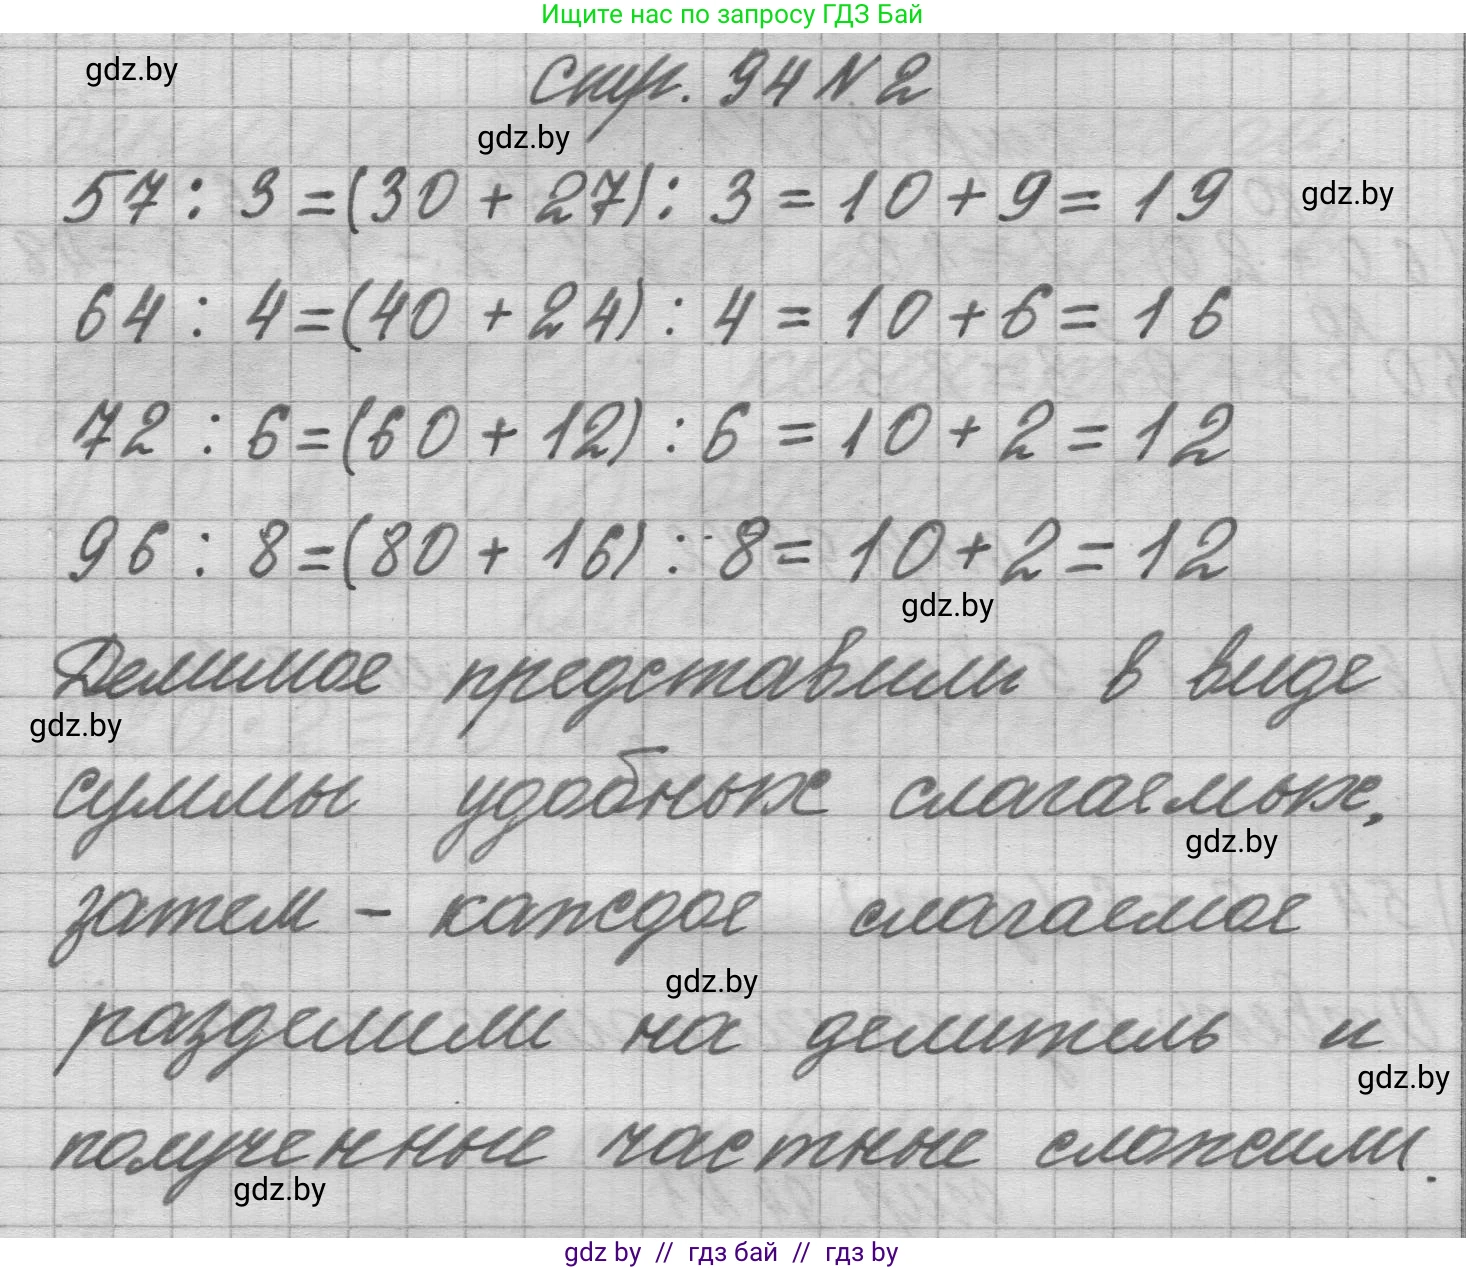 Ищите нас по запросу ГДЗ Бай
gdz.by
Стр. 94 N 2
gdz.by
57 : 3 = (30 + 27) : 3 = 10 + 9 = 19
gdz.by
64 : 4 = (40 + 24) : 4 = 10 + 6 = 16
72 : 6 = (60 + 12) : 6 = 10 + 2 = 12
96 : 8 = (80 + 16) : 8 = 10 + 2 = 12
gdz.by
Делимое представили в виде
gdz.by
суммы удобных слагаемых,
gdz.by
затем - каждое слагаемое
gdz.by
разделили на делитель и
gdz.by
полученные частные сложили.
gdz.by
gdz by // гдз бай // гдз by